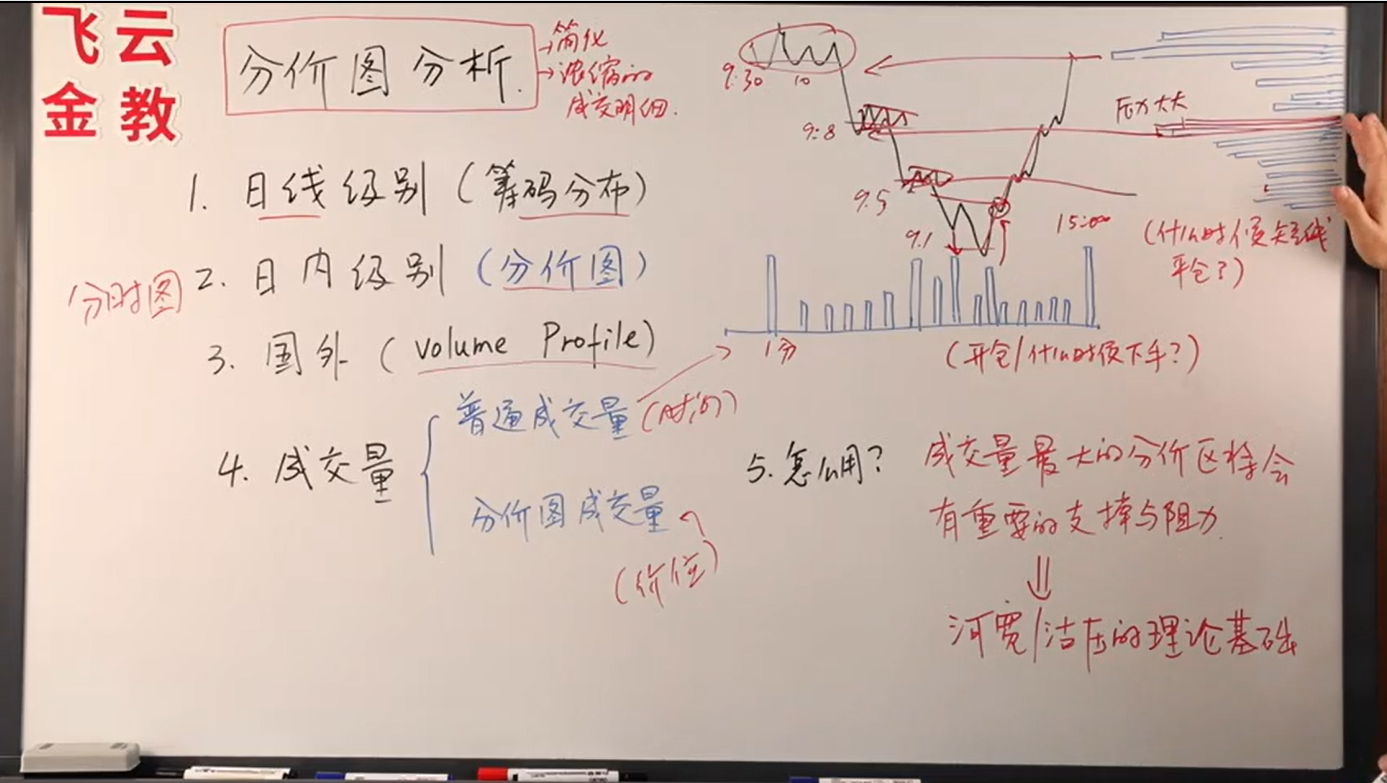 飞云
金教
分价图分析.
→简化
→浓缩的
成交明细.
1. 日线级别（筹码分布）
2. 日内级别（分价图）
分时图
3. 国外（Volume Profile）
4. 成交量
普通成交量（时间）
分价图成交量
（价位）
9:30
10
9:8
9.5
9.1
15:00
压力大大
（什么时候短线
平仓？）
1分
（开仓/什么时候下手？）
5. 怎么用？
成交量最大的分价区将会
有重要的支撑与阻力.
⇓
河宽/沽压的理论基础